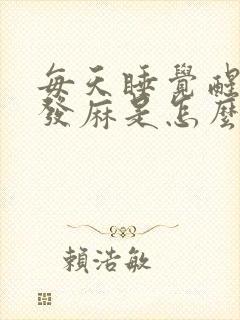 每天睡覺醒
發麻是怎麼
賴浩敏